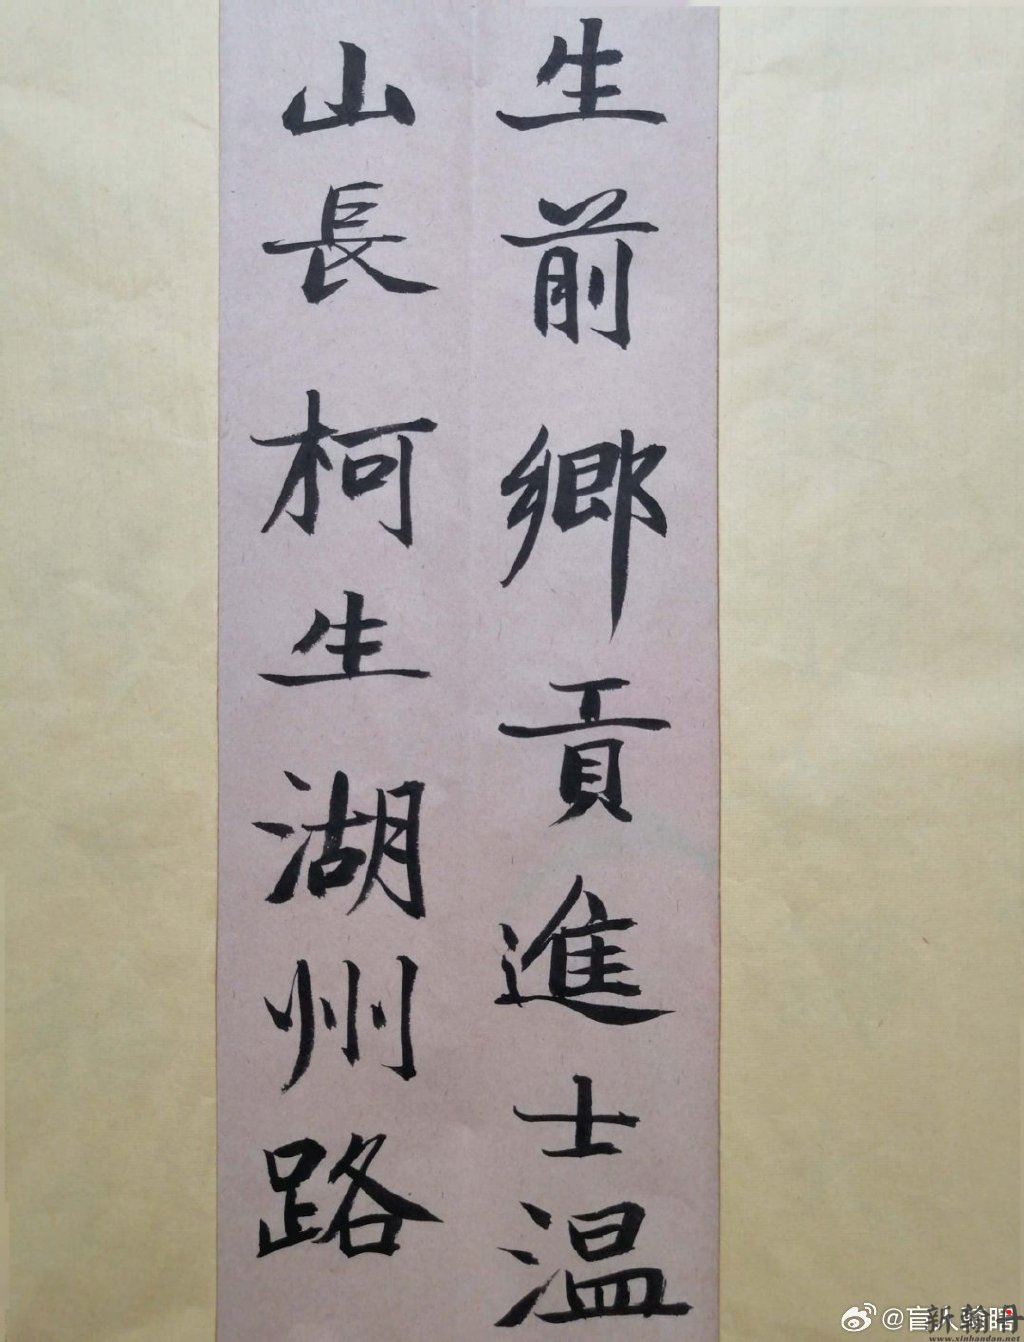 生前鄉貢進士温
山長柯生湖州路
@盲人
新翰丹
www.xinhandan.net